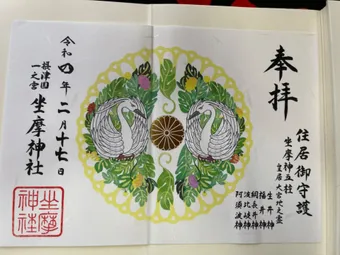 奉拝
住居御守護
坐摩神五柱
皇居大宮地之霊
生井神
福井神
綱長井神
波比岐神
阿須波神
令和四年二月十七日
摂津国
一之宮
坐摩神社
坐摩
神社